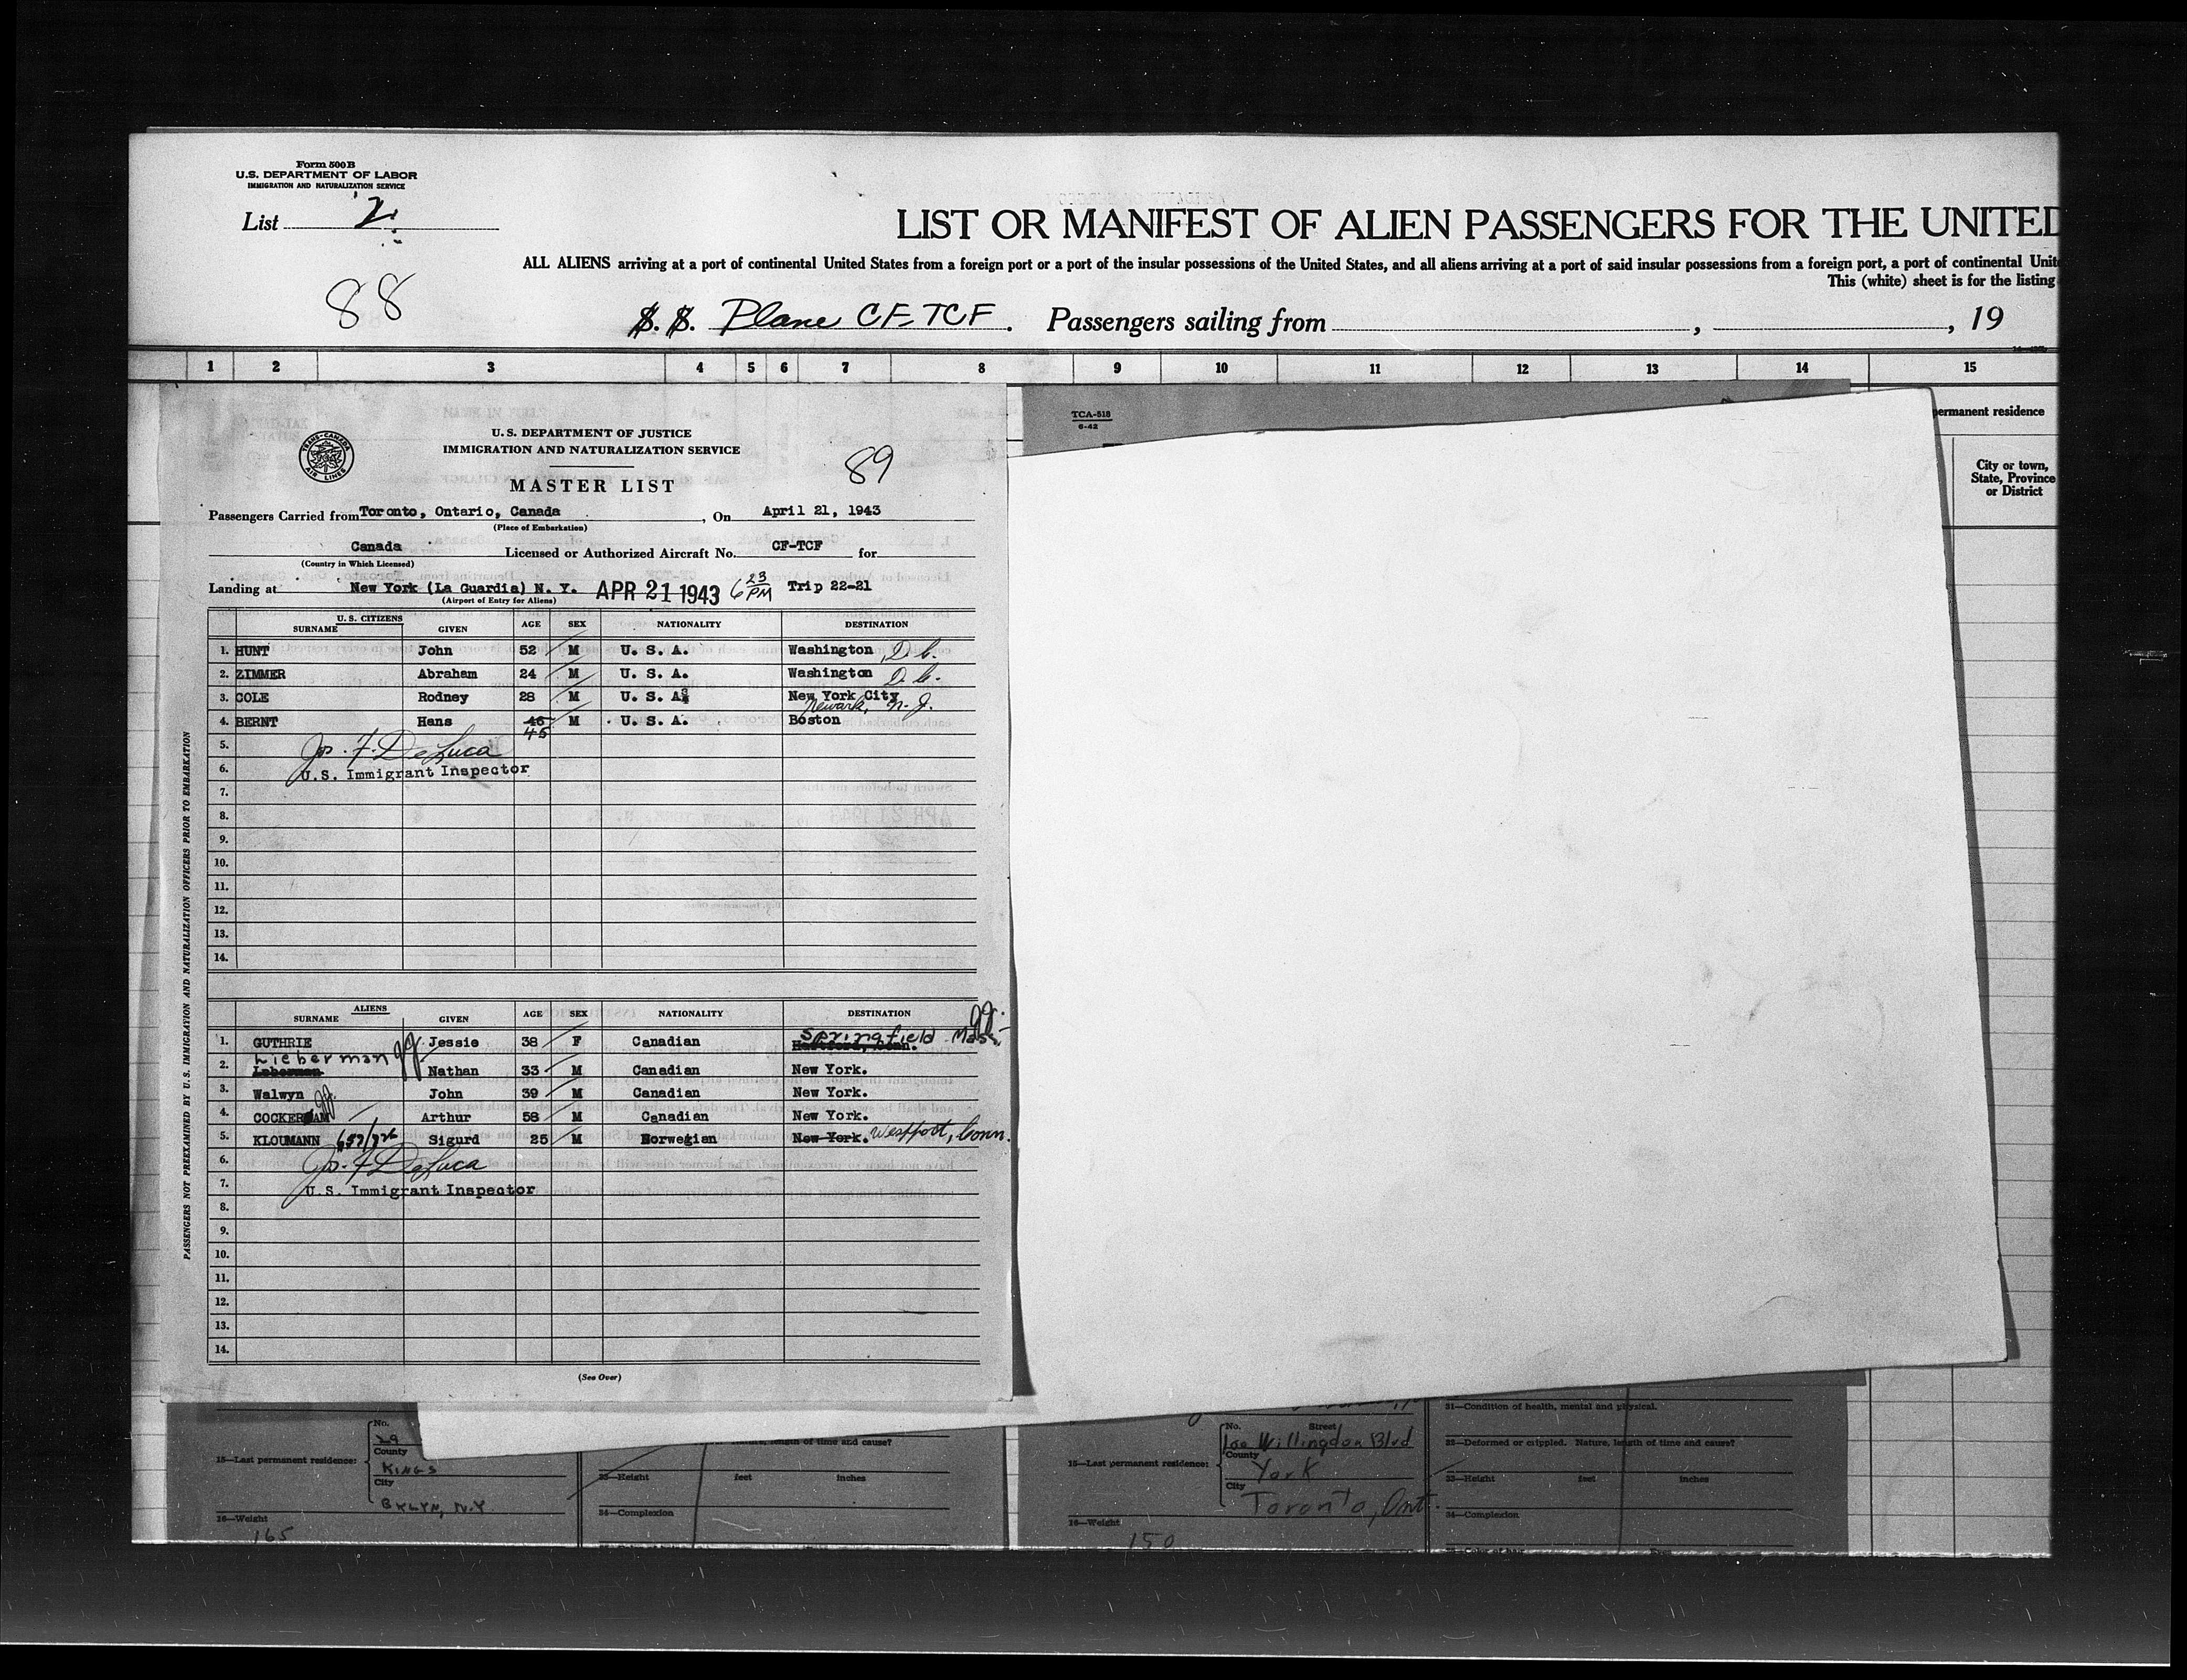 Form 500B
U.S. DEPARTMENT OF LABOR
IMMIGRATION AND NATURALIZATION SERVICE
List 2
88
LIST OR MANIFEST OF ALIEN PASSENGERS FOR THE UNITED
ALL ALIENS arriving at a port of continental United States from a foreign port or a port of the insular possessions of the United States, and all aliens arriving at a port of said insular possessions from a foreign port, a port of continental Unit
This (white) sheet is for the listing
S. S. Plane CF-TCF. Passengers sailing from , , 19
1 2 3 4 5 6 7 8 9 10 11 12 13 14 15
TCA-518
6-42
permanent residence
City or town,
State, Province
or District
TRANS-CANADA AIR LINES
U. S. DEPARTMENT OF JUSTICE
IMMIGRATION AND NATURALIZATION SERVICE
89
MASTER LIST
Passengers Carried from Toronto, Ontario, Canada, On April 21, 1943
(Place of Embarkation)
Canada Licensed or Authorized Aircraft No. CF-TCF for
(Country in Which Licensed)
Landing at New York (La Guardia) N. Y. APR 21 1943 6 23 PM Trip 22-21
(Airport of Entry for Aliens)
U. S. CITIZENS
SURNAME GIVEN AGE SEX NATIONALITY DESTINATION
1. HUNT John 52 M U. S. A. Washington, D.C.
2. ZIMMER Abraham 24 M U. S. A. Washington D.C.
3. COLE Rodney 28 M U. S. A. New York City
Newark, N. J.
4. BERNT Hans 46 M U. S. A. Boston
45
5. Jos. F. DeLuca
6. U.S. Immigrant Inspector
7.
8.
9.
10.
11.
12.
13.
14.
ALIENS
SURNAME GIVEN AGE SEX NATIONALITY DESTINATION
Springfield Mass.
1. GUTHRIE Jessie 38 F Canadian Hartford, Conn.
Lieberman
2. Nathan 33 M Canadian New York.
3. Walwyn John 39 M Canadian New York.
4. COCKERHAM Arthur 58 M Canadian New York.
5. KLOUMANN Sigurd 25 M Norwegian New York. Westport, Conn.
6. Jos. F. DeLuca
7. U.S. Immigrant Inspector
8.
9.
10.
11.
12.
13.
14.
(See Over)
PASSENGERS NOT PREEXAMINED BY U.S. IMMIGRATION AND NATURALIZATION OFFICERS PRIOR TO EMBARKATION
No.
29
County
15—Last permanent residence: KINGS
City
BKLYN, N.Y.
16—Weight
165
length of time and cause?
33—Height feet inches
34—Complexion
No. Street
100 Willingdon Blvd
County
15—Last permanent residence: York
City
Toronto, Ont.
16—Weight
150
31—Condition of health, mental and physical.
32—Deformed or crippled. Nature, length of time and cause?
33—Height feet inches
34—Complexion